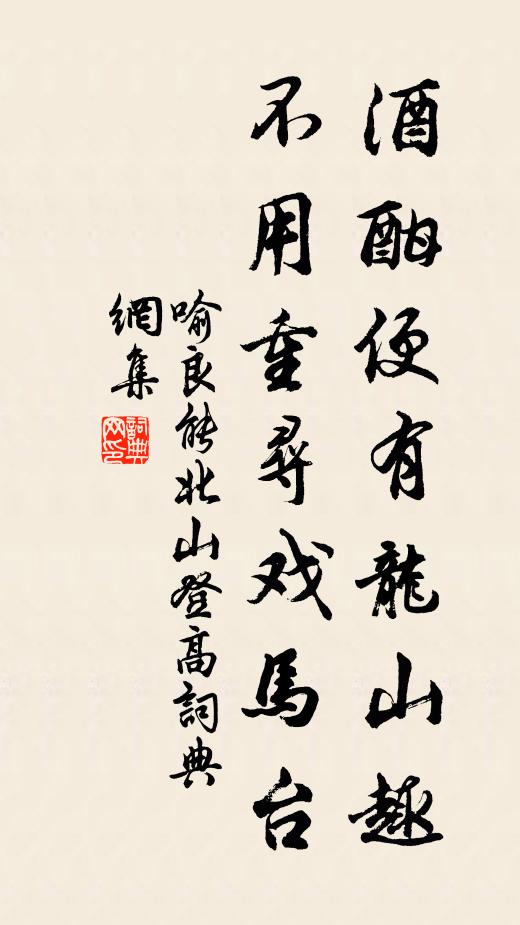 酒酣便有龍山趣
不用重尋戏馬台
喻良能北山登高詞典
網集
詞典
网印